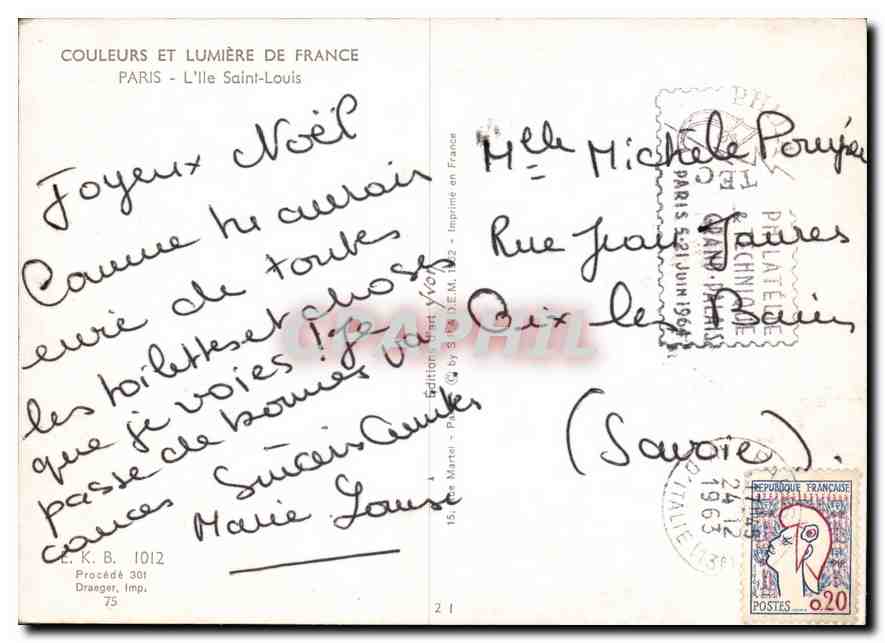 COULEURS ET LUMIÈRE DE FRANCE
PARIS - L'Ile Saint-Louis
Joyeux Noël
Comme tu aurais
envie de toutes
les toilettes et choses
que je vois ! je
passe de bonnes va
cances Sincères Amitiés
Marie Louise
E. K. B. 1012
Procédé 301
Draeger, Imp.
75
Éditions d'art YVON
15, rue Martel - Paris © by S.P.A.D.E.M. 1962 - Imprimé en France
21
Mlle Michèle
Rue Jean Jaures
Aix les Bains
(Savoie).
PHILATEC
PARIS 5-21 JUIN 1964
GRAND-PALAIS
& TECHNIQUE
PHILATÉLIE
17H45
24-12
1963
D'ITALIE (13E)
REPUBLIQUE FRANÇAISE
POSTES 0,20
CPAPHIL